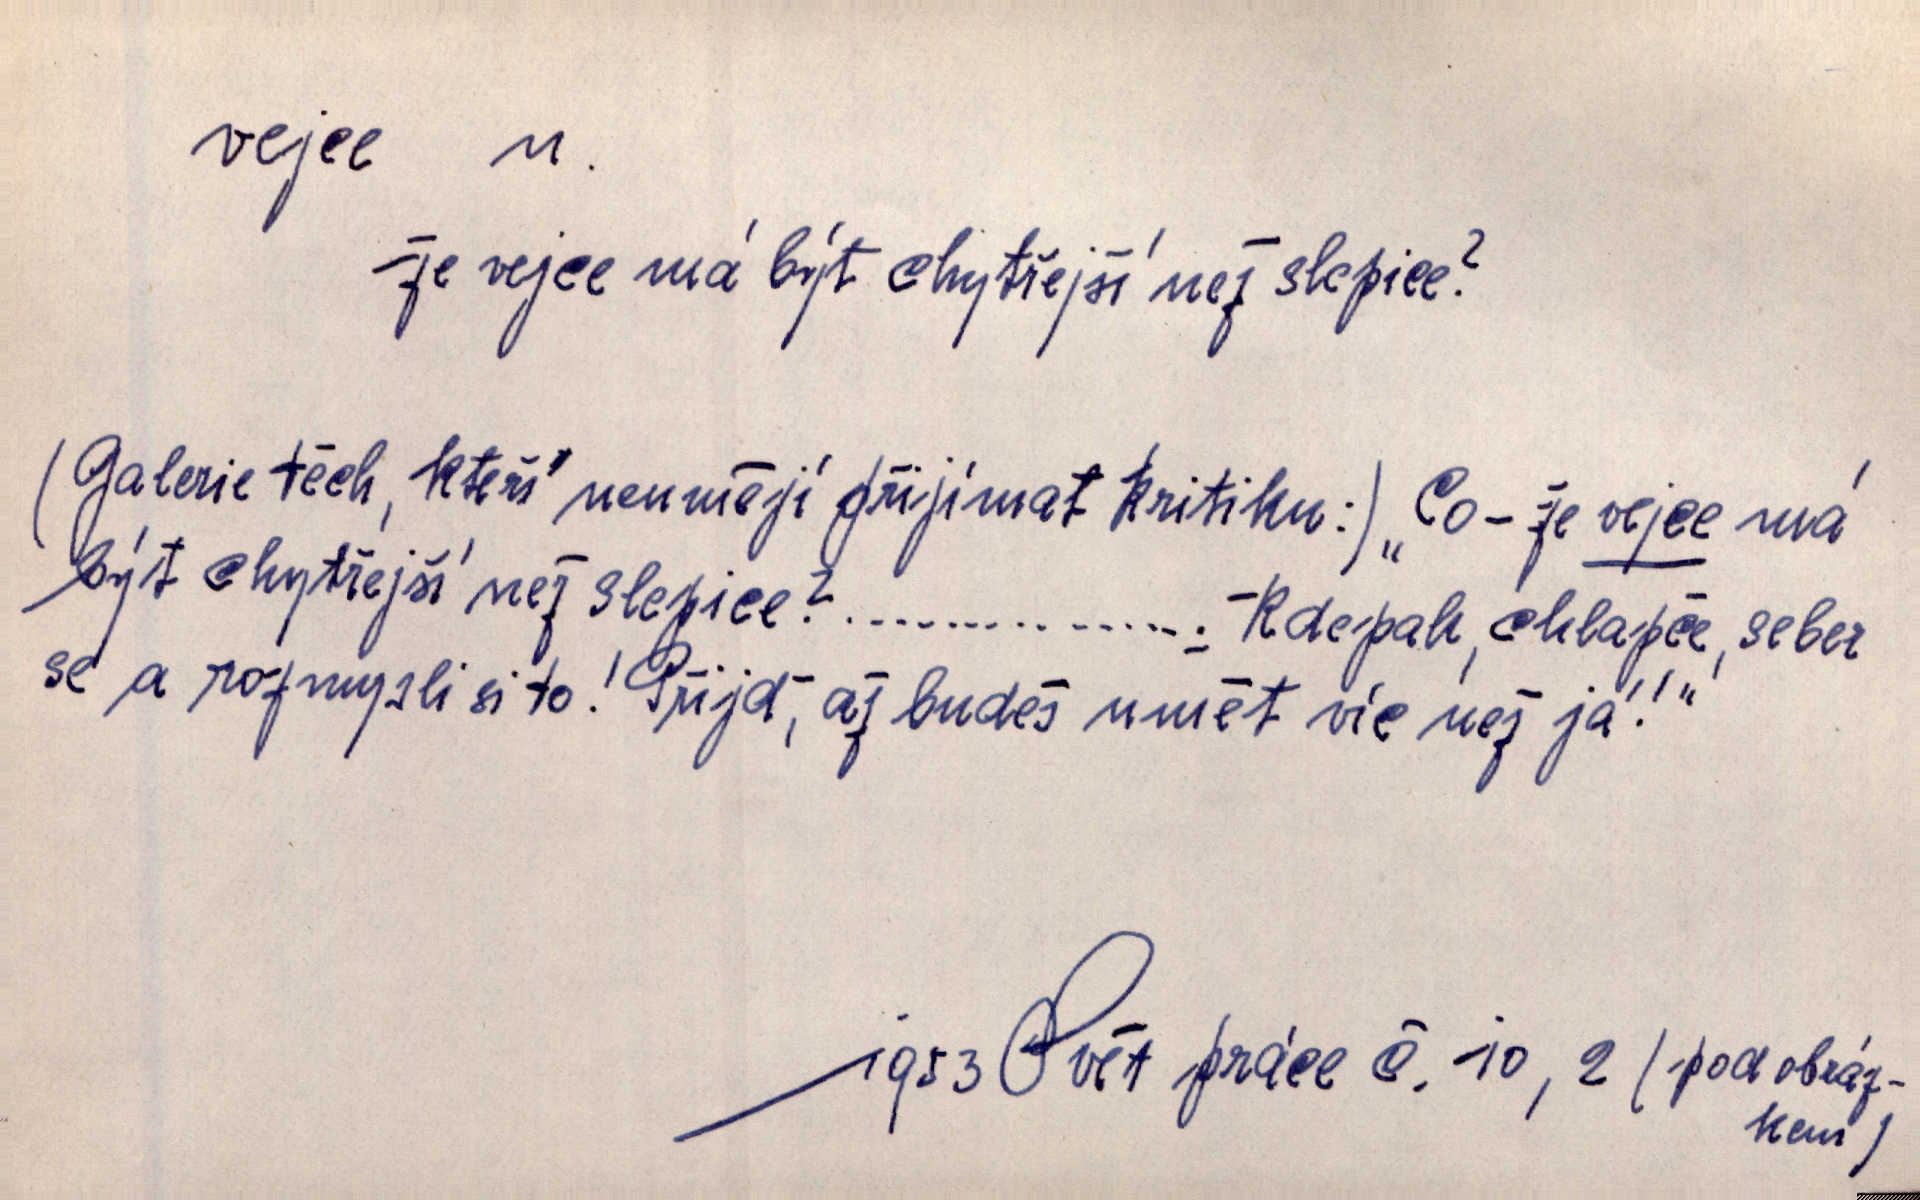 vejce n.
že vejce má být chytřejší než slepice?
(Galerie těch, kteří neumějí přijímat kritiku:) „Co - že vejce má
být chytřejší než slepice? .................. Kdepak, chlapče, seber
se a rozmysli si to! Přijď, až budeš umět víc než já!!“
1953 Svět práce č. 10, 2 (pod obráz-
kem)